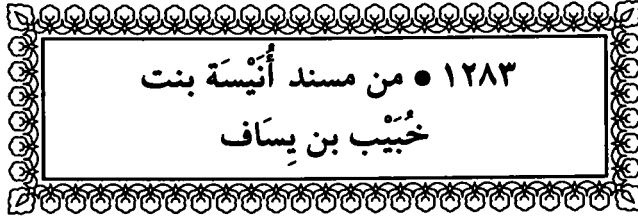 ١٢٨٣ ● من مسند أُنَيْسَة بنت
خُبَيْب بن يِسَاف